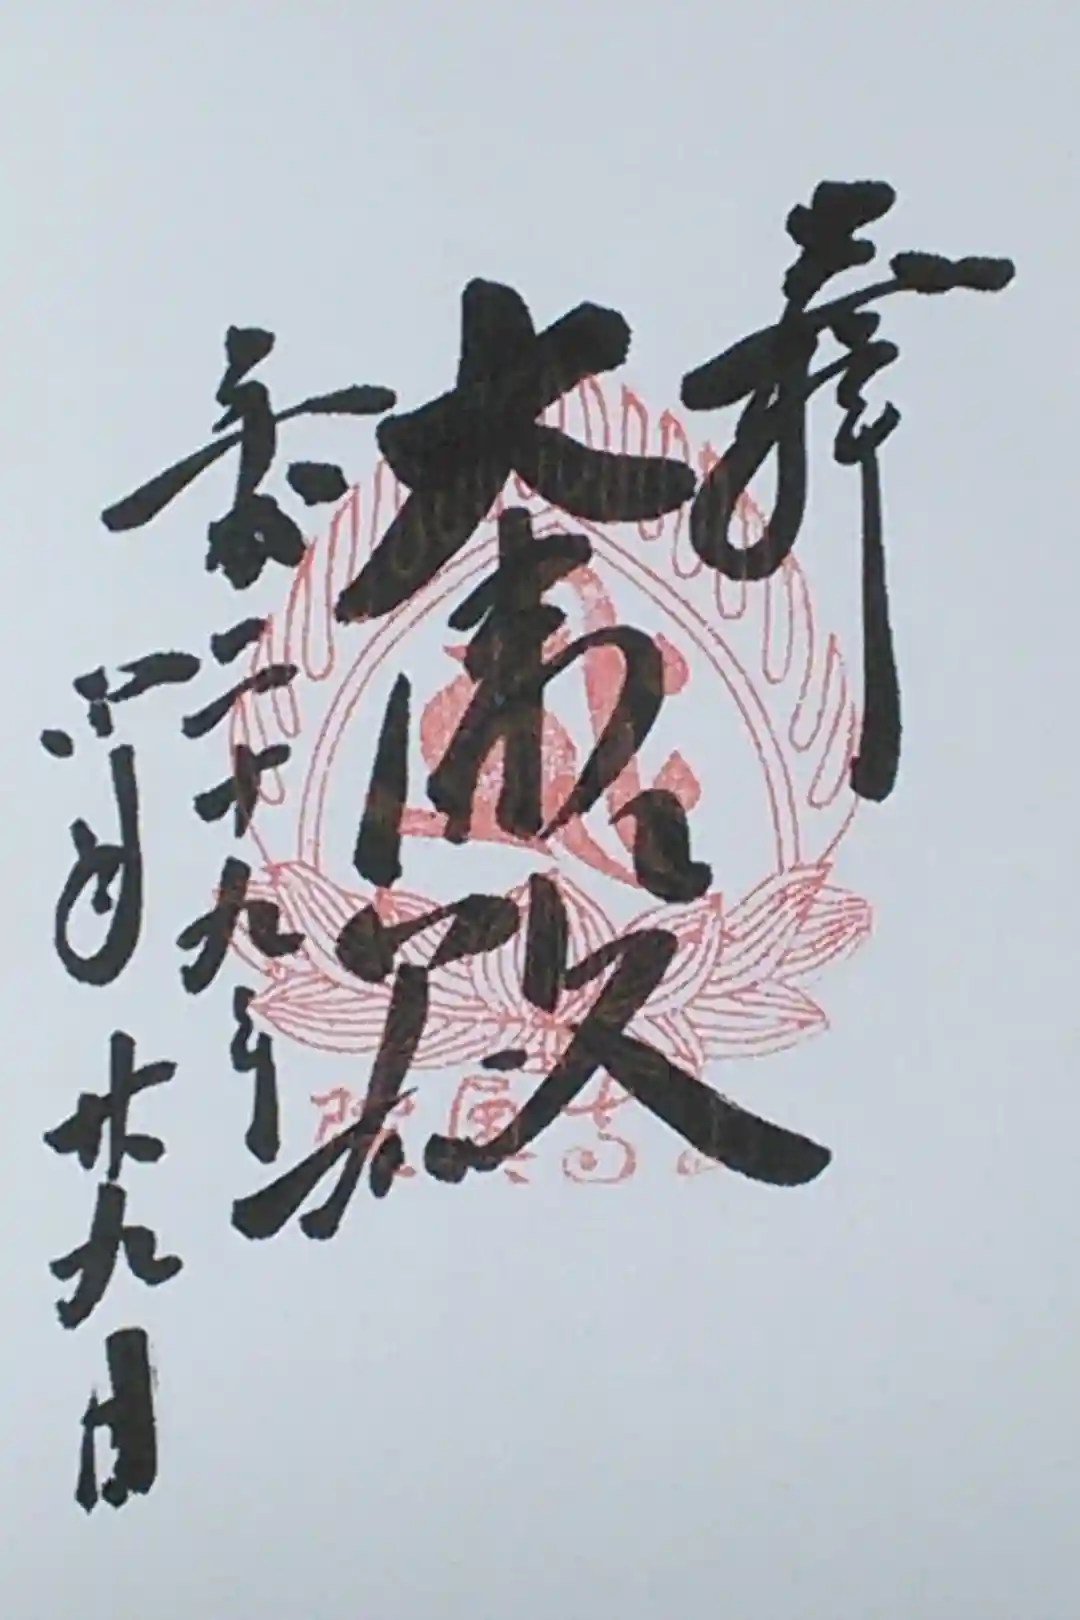 奉拝
大悲殿
平成二十九年
月廿九日